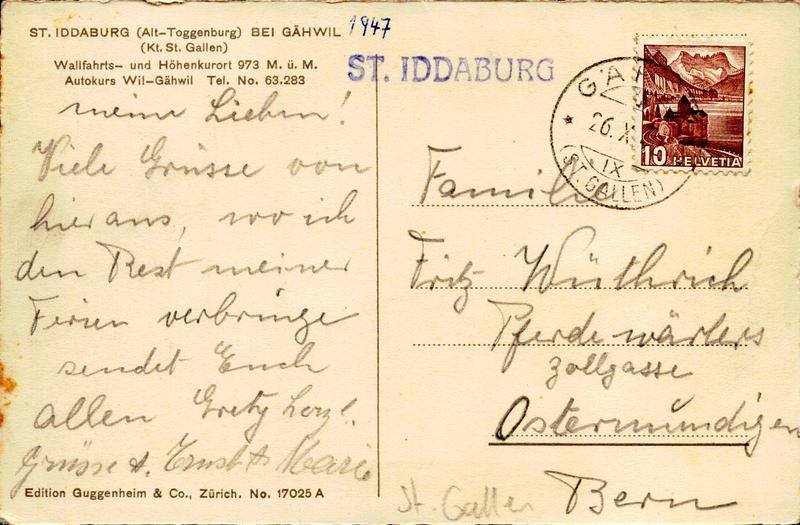 ST. IDDABURG (Alt-Toggenburg) BEI GÄHWIL
(Kt. St. Gallen)
Wallfahrts- und Höhenkurort 973 M. ü. M.
Autokurs Wil-Gähwil Tel. No. 63.283
1947
ST. IDDABURG
meine Lieben!
Viele Grüsse von
hieraus, wo ich
den Rest meiner
Ferien verbringe
sendet Euch
allen Grety herzl.
Grüsse Ernst Marie
Edition Guggenheim & Co., Zürich. No. 17025 A
26. X
IX
(ST. GALLEN)
10 HELVETIA
Familie
Fritz Wüthrich
Pferdewärters
Zollgasse
Ostermundigen
Bern
St. Gallen